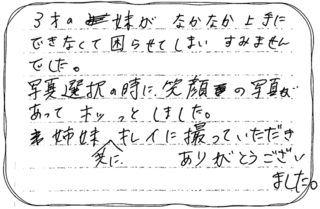 3才の妹が なかなか上手に
できなくて困らせてしまい すみません
でした。
写真選択の時に、笑顔の写真が
あって ホッっと しました。
姉妹共に キレイに 撮っていただき
ありがとうござい
ました。